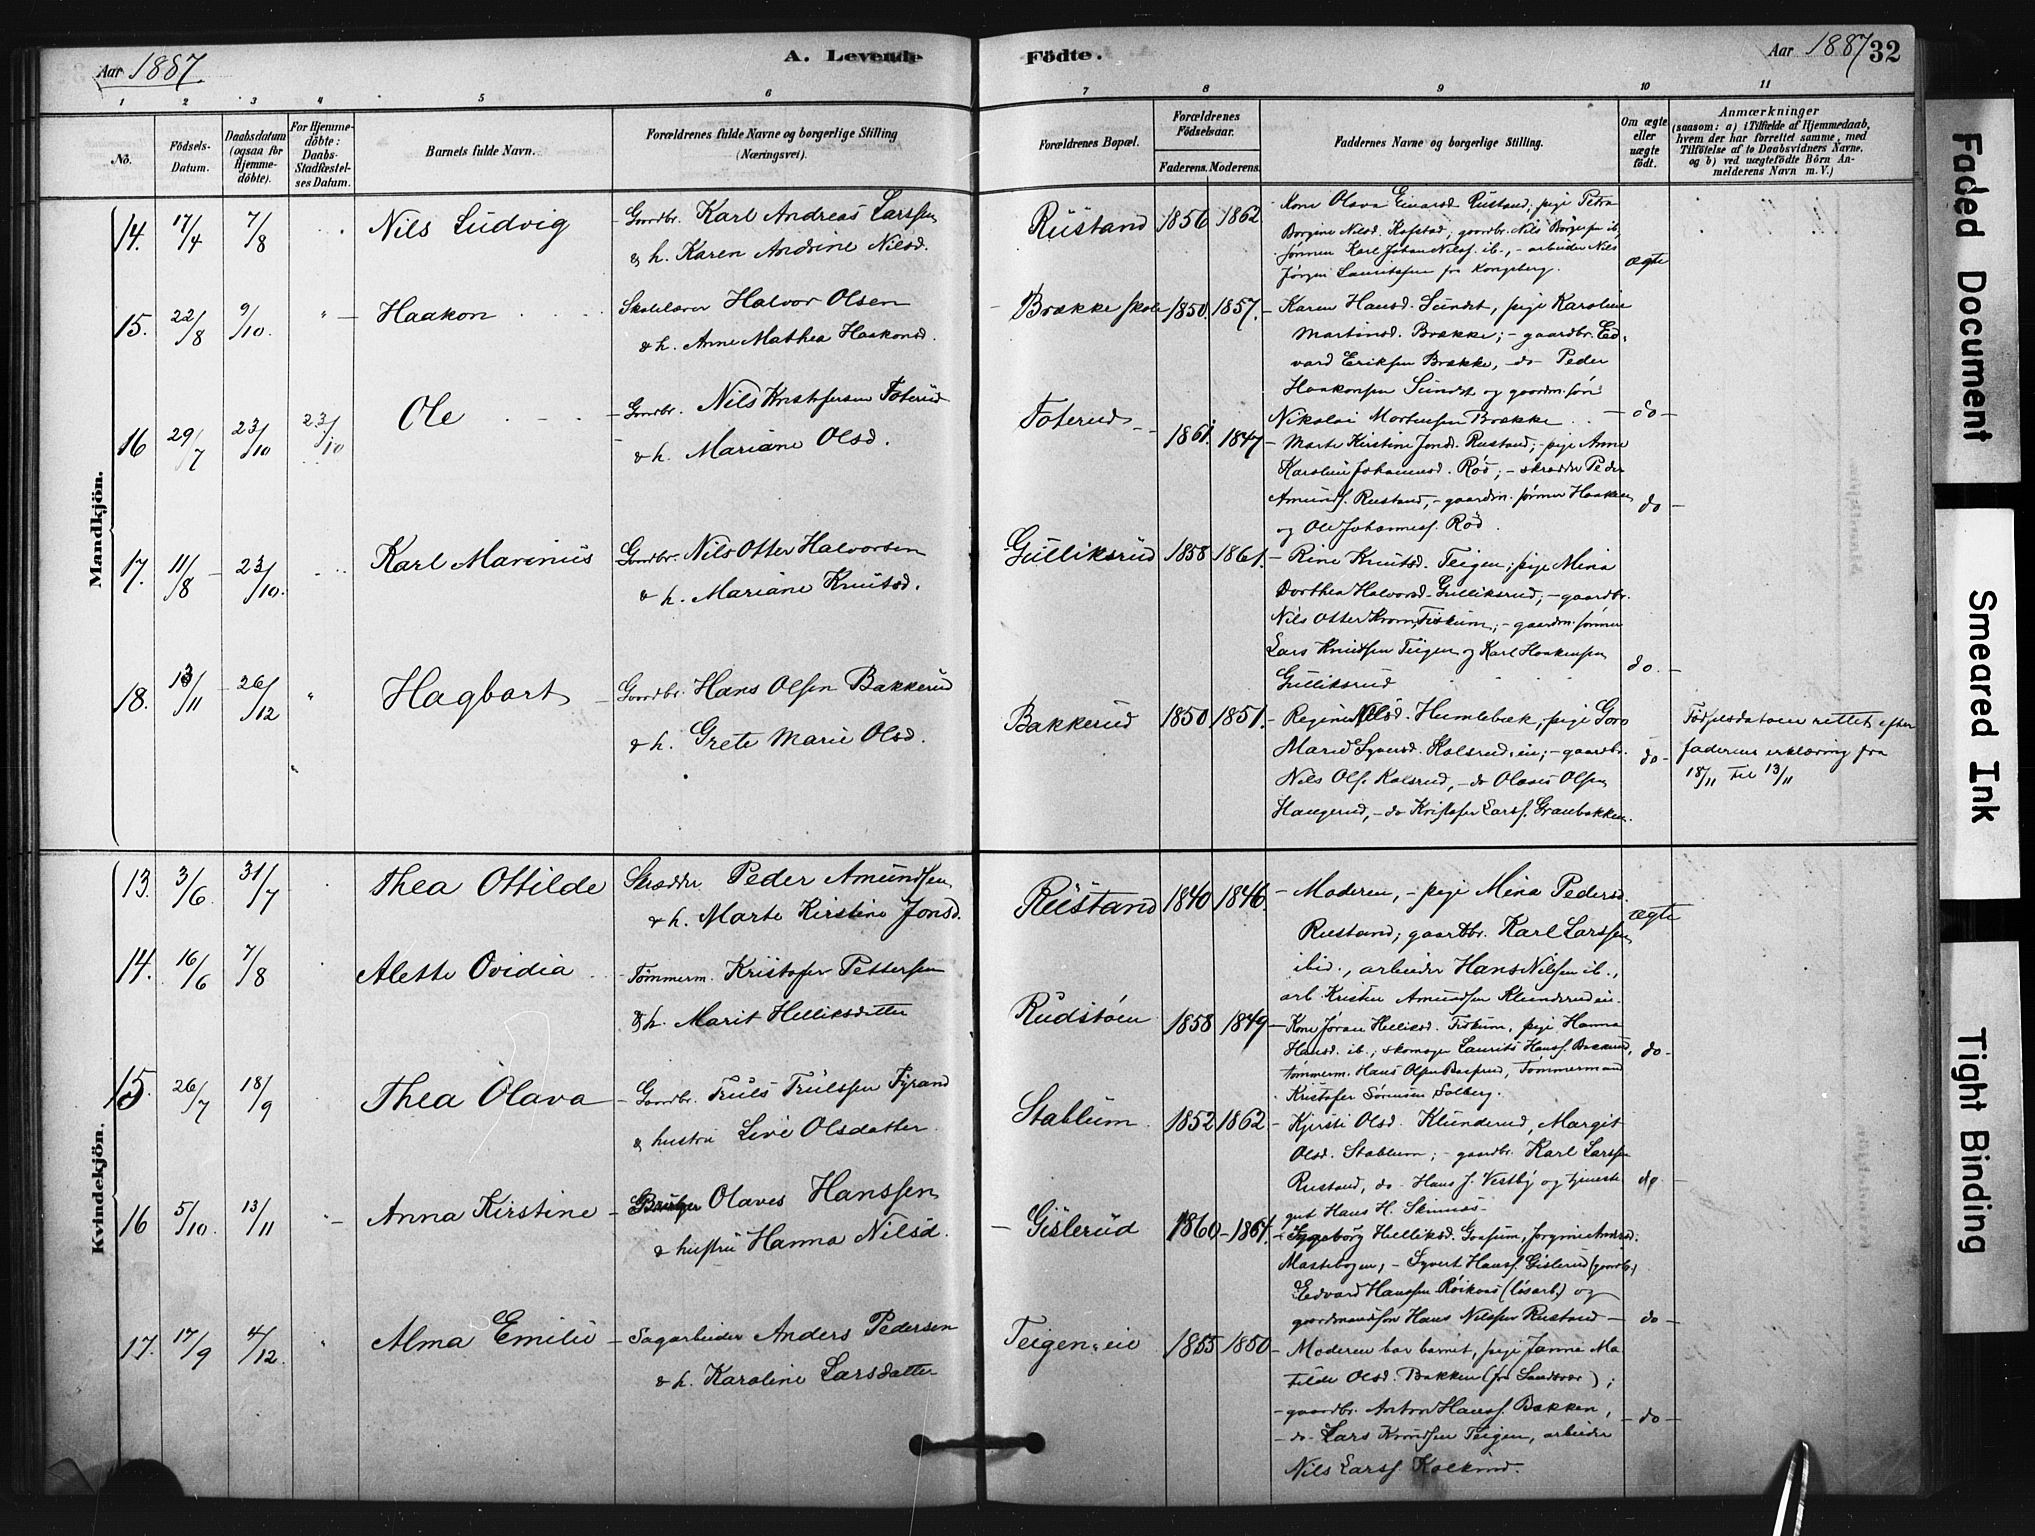 Aar 1887
A. Levende
Födte.
Aar 1887 32
1 2 3 4 5 6 7 8 9 10 11
No.
Födsels-Datum.
Daabsdatum (ogsaa for Hjemme-döbte).
For Hjemme-döbte: Daabs-Stadfæstel-ses Datum.
Barnets fulde Navn.
Forældrenes fulde Navne og borgerlige Stilling
(Næringsvei).
Forældrenes Bopæl.
Forældrenes Födselsaar.
Faderens. Moderens.
Faddernes Navne og borgerlige Stilling.
Om ægte eller uægte födt.
Anmærkninger
(saasom: a) i Tilfælde af Hjemmedaab,
hvem der har forrettet samme, med
Tilföielse af to Daabsvidners Navne,
og b) ved uægtefödte Börn An-
melderens Navn m. V.)
Mandkjön.
14. 17/4 7/8 Nils Ludvig
Gaardbr. Karl Andreas Larssen
& h. Karen Andrine Nilsd.
Rustand 1856 1862
Kone Olava Einarsd. Rustand; pige Petra
Borgine Nilsd. Kofstad; gaardbr. Nils Börgesen ib.
sønnen Karl Johan Nilss. ib., - arbeider Nils
Jörgen Lauritssen fra Kongsberg.
ægte
15. 22/8 9/10. Haakon
Skolelærer Halvor Olsen
& h. Anne Mathea Haakonsd.
Brække skole 1850. 1857.
Karen Hansd. Sundet, pige Karoline
Martinsd. Brække; - gaardbr. Ed-
vard Eriksen Brække, do Peder
Haakonsen Sundet og gaardm. søn
Nikolai Mortensen Brække
do
16 29/7 23/10 23/10 Ole
Gaardbr. Nils Kristofersen Foterud
& h. Mariane Olsd.
Foterud 1861. 1847
Marte Kirstine Jonsd. Rustand; pige Anne
Karoline Johannesd. Rød; - skrædder Peder
Amunds. Rustand, - gaardm. sønner Haaken
og Ole Johanness. Rød.
do
17. 11/8 23/10. Karl Marenius
Gaardbr. Nils Otter Halvorsen
& h. Mariane Knutsd.
Gulliksrud 1858 1861.
Rine Knutsd. Teigen; pige Mina
Dorthea Halvorsd. Gulliksrud; - gaardbr.
Nils Otter Krom. Fiskum; - gaardm. sønner
Lars Knudsen Teigen og Karl Haakensen
Gulliksrud
do.
18. 13/11 26/12 Hagbart
Gaardbr. Hans Olsen Bakkerud
& h. Grete Marie Olsd.
Bakkerud 1850 1851.
Regine Nilsd. Humlebæk, pige Goro
Marie Syversd. Kolsrud, ei; - gaardbr.
Nils Ols. Kolsrud, - do Olaves Olsen
Haugerud, - do Kristofer Larss. Granbakken.
do
Fødselsdatoen rettet efter
faderens erklæring fra
18/11 til 13/11
Kvindekjön.
13. 3/6. 31/7 Thea Ottilde
Skrædder Peder Amundsen
& h. Marte Kirstine Jonsd.
Rustand 1840 1846.
Moderen, - pige Mina Pedersd.
Rustand; gaardbr. Karl Larssen
ibid., arbeider Hans Nilsen ib.,
arb. Kristen Amundsen Klunderud ei.
ægte
14. 16/6 7/8 Alette Ovidia
Tømmerm. Kristofer Pettersen
& h. Marit Helliksdatter
Rudstøen 1858 1849
Kone Jøran Helliksd. Fiskum, pige Hanna
Hansd. ib.; skomager Laurits Hanss. Bakkerud,
tømmerm. Hans Olsen Basserud, Tømmermand
Kristofer Sørensen Solberg.
do
15. 26/7 18/9 Thea Olava
Gaardbr. Truls Trulssen Fyrand
& hustru Live Olsdatter
Stablum 1852 1862
Kjersti Olsd. Klunderud, Margit
Olsd. Stablum; - gaardbr. Karl Larssen
Rustand, do. Hans J. Vestby og tjeneste
gut Hans H. Skinnes
do
16 5/10. 13/11 Anna Kirstine
Olaves Hanssen
& hustru Hanna Nilsd.
Gislerud 1860 1861.
Ingeborg Helliksd. Goasum, Jorgine Andersd.
Mastebogen, - Syvert Hanss. Gislerud (gaardb.)
Edvard Hanssen Röikaas (løsarb) og
gaardmandsøn Hans Nilssen Rustand
do
17. 17/9 4/12. Alma Emilie
Sagarbeider Anders Pedersen
& h. Karoline Larsdatter
Teigen, eie 1855 1850
Moderen bar barnet, pige Janna Ma-
tilde Olsd. Bakken (fra Sandsvær);
gaardbr. Anton Hanss. Bakken,
do Lars Knudsen Teigen, arbeider
Nils Larss. Kolkind.
do
Faded Document
Smeared Ink
Tight Binding